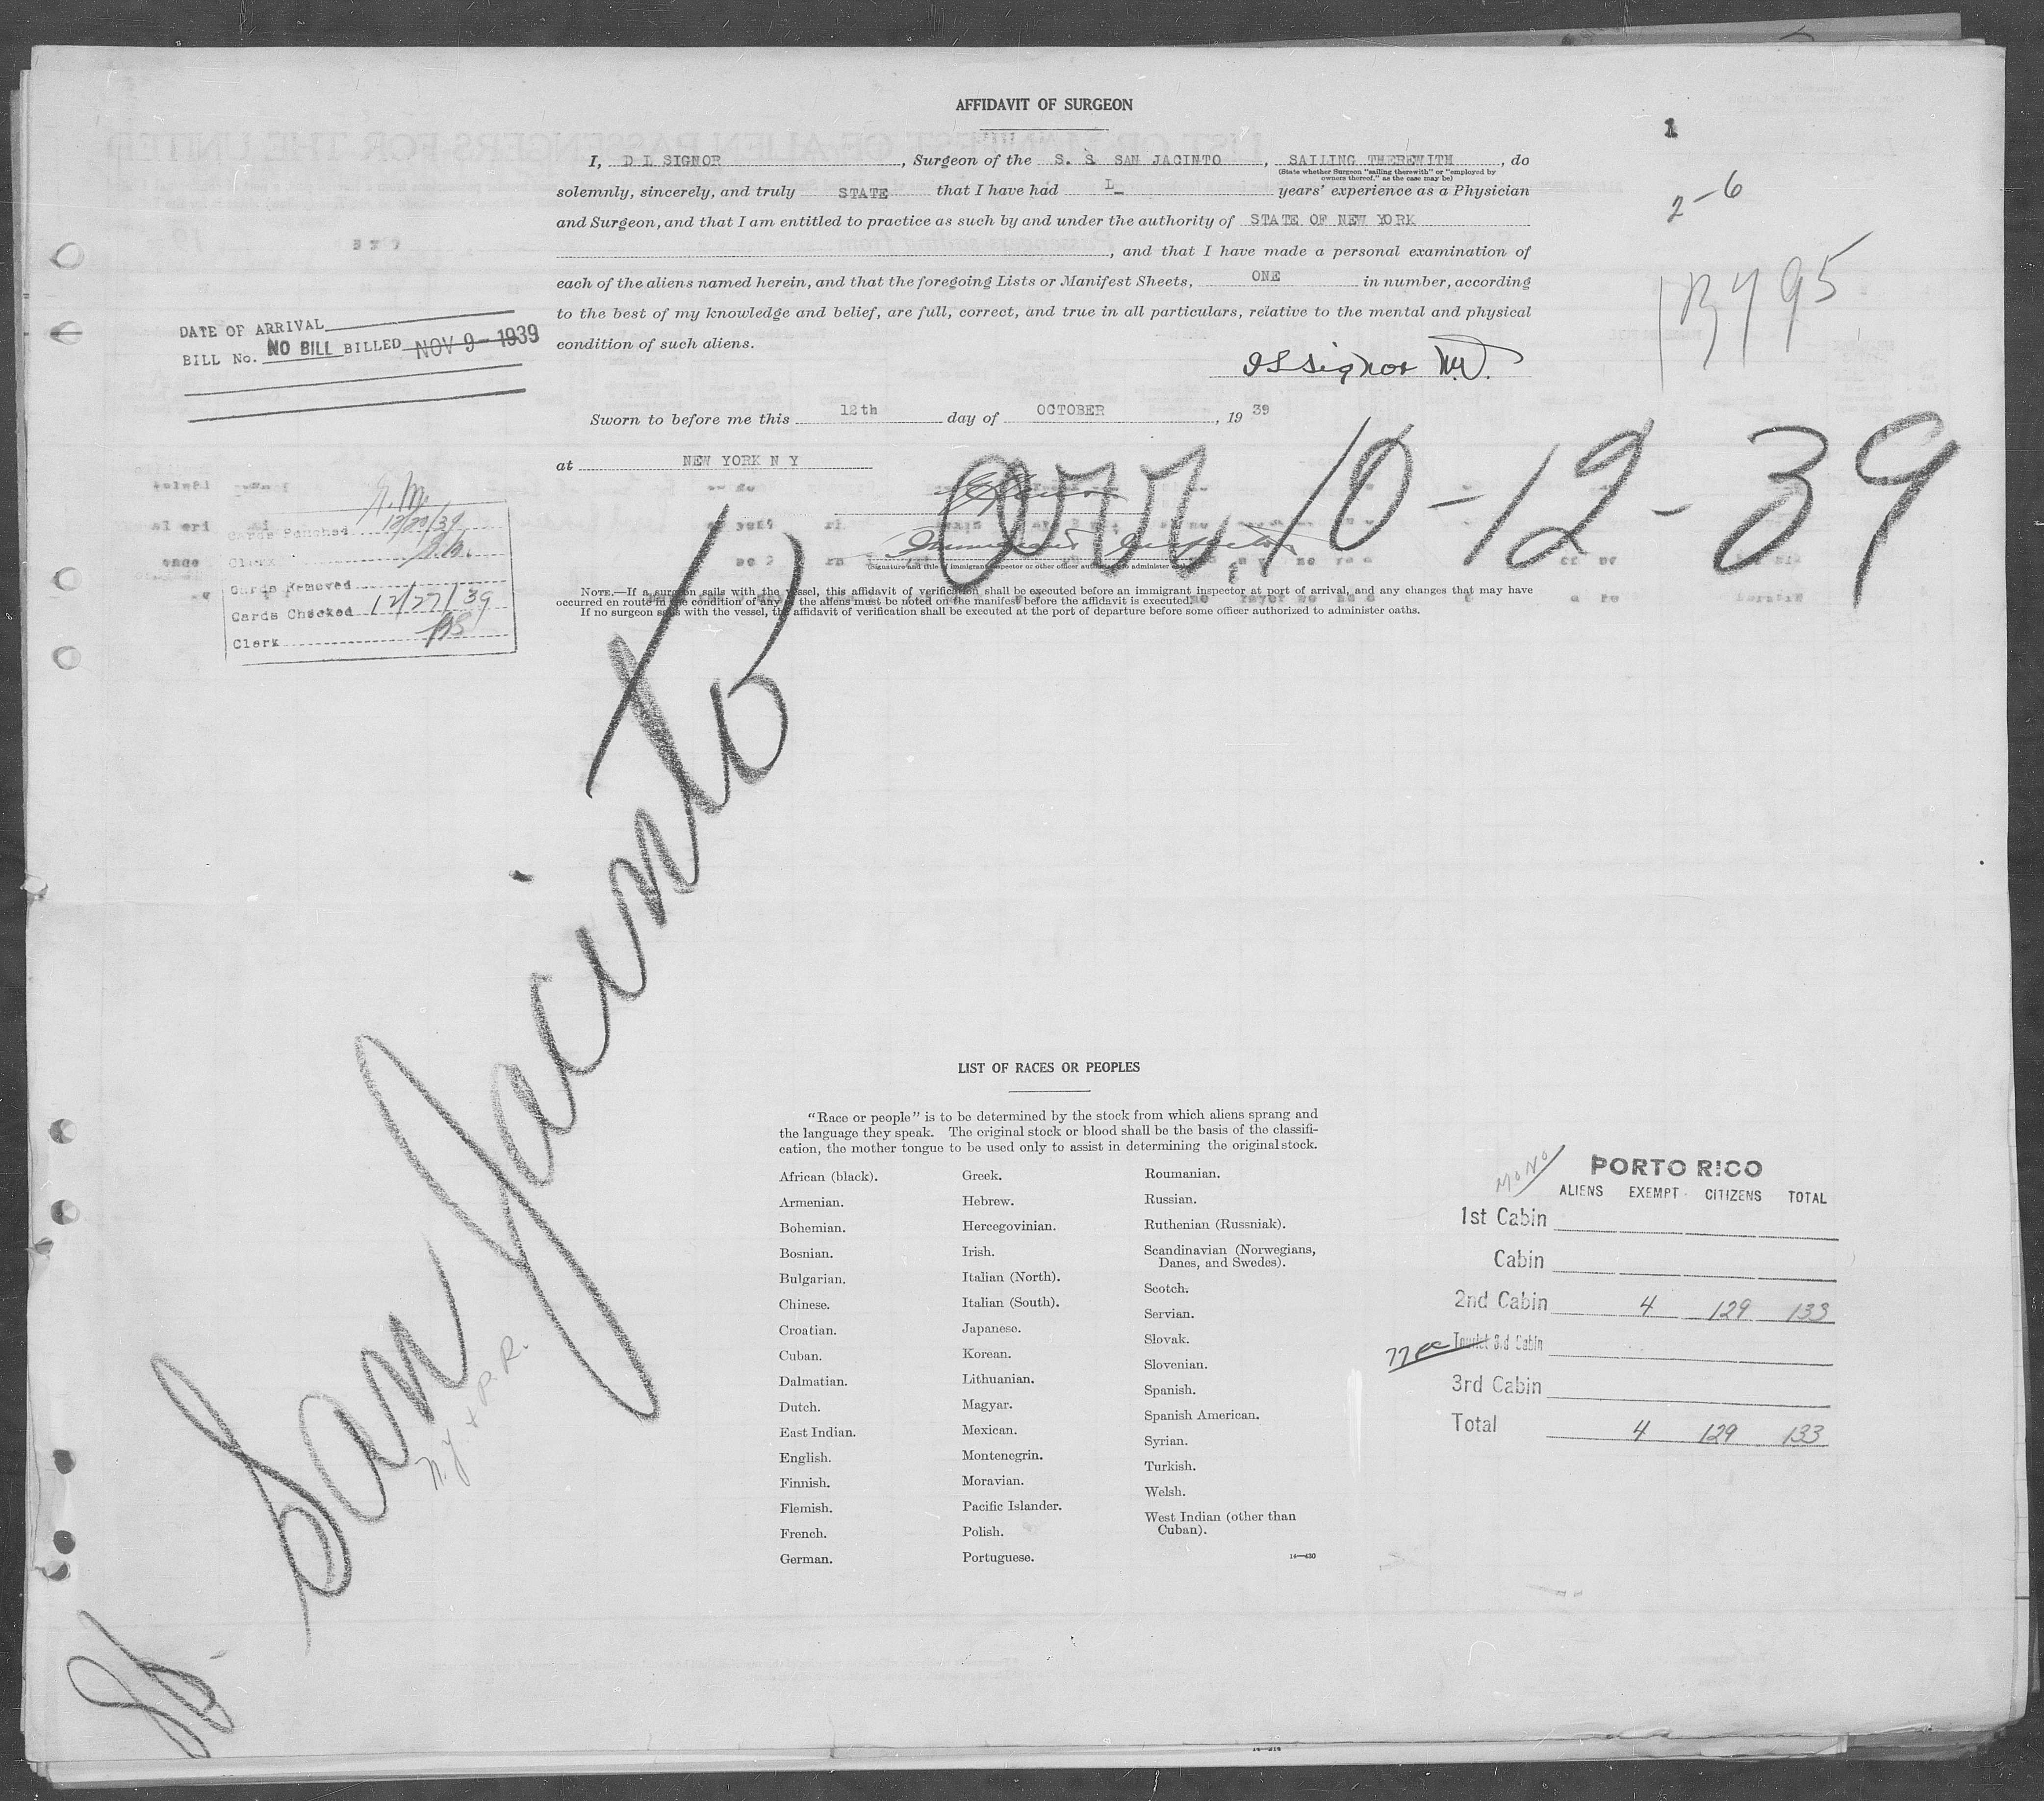 AFFIDAVIT OF SURGEON
1
I, D L SIGNOR, Surgeon of the S. S. SAN JACINTO, SAILING THEREWITH, do
(State whether Surgeon "sailing therewith" or "employed by
owners thereof," as the case may be)
solemnly, sincerely, and truly STATE that I have had years' experience as a Physician
2-6
and Surgeon, and that I am entitled to practice as such by and under the authority of STATE OF NEW YORK
, and that I have made a personal examination of
each of the aliens named herein, and that the foregoing Lists or Manifest Sheets, ONE in number, according
to the best of my knowledge and belief, are full, correct, and true in all particulars, relative to the mental and physical
condition of such aliens.
DATE OF ARRIVAL
BILL No. NO BILL BILLED NOV 9-1939
Signor M.D.
Sworn to before me this 12th day of OCTOBER, 19 39
at NEW YORK N Y
10-12-39
Immigrant Inspector
(Signature and title of immigrant inspector or other officer authorized to administer oaths)
Cards Punched 12/20/39
Clerk
Cards Removed
Cards Checked 12/27/39
Clerk
NOTE.—If a surgeon sails with the vessel, this affidavit of verification shall be executed before an immigrant inspector at port of arrival, and any changes that may have
occurred en route in the condition of any of the aliens must be noted on the manifest before the affidavit is executed.
If no surgeon sails with the vessel, the affidavit of verification shall be executed at the port of departure before some officer authorized to administer oaths.
San Jacinto
LIST OF RACES OR PEOPLES
"Race or people" is to be determined by the stock from which aliens sprang and
the language they speak. The original stock or blood shall be the basis of the classifi-
cation, the mother tongue to be used only to assist in determining the original stock.
African (black).
Armenian.
Bohemian.
Bosnian.
Bulgarian.
Chinese.
Croatian.
Cuban.
Dalmatian.
Dutch.
East Indian.
English.
Finnish.
Flemish.
French.
German.
Greek.
Hebrew.
Hercegovinian.
Irish.
Italian (North).
Italian (South).
Japanese.
Korean.
Lithuanian.
Magyar.
Mexican.
Montenegrin.
Moravian.
Pacific Islander.
Polish.
Portuguese.
Roumanian.
Russian.
Ruthenian (Russniak).
Scandinavian (Norwegians,
Danes, and Swedes).
Scotch.
Servian.
Slovak.
Slovenian.
Spanish.
Spanish American.
Syrian.
Turkish.
Welsh.
West Indian (other than
Cuban).
14—430
PORTO RICO
ALIENS EXEMPT CITIZENS TOTAL
1st Cabin
Cabin
2nd Cabin 4 129 133
Tourist 3rd Cabin
3rd Cabin
Total 4 129 133